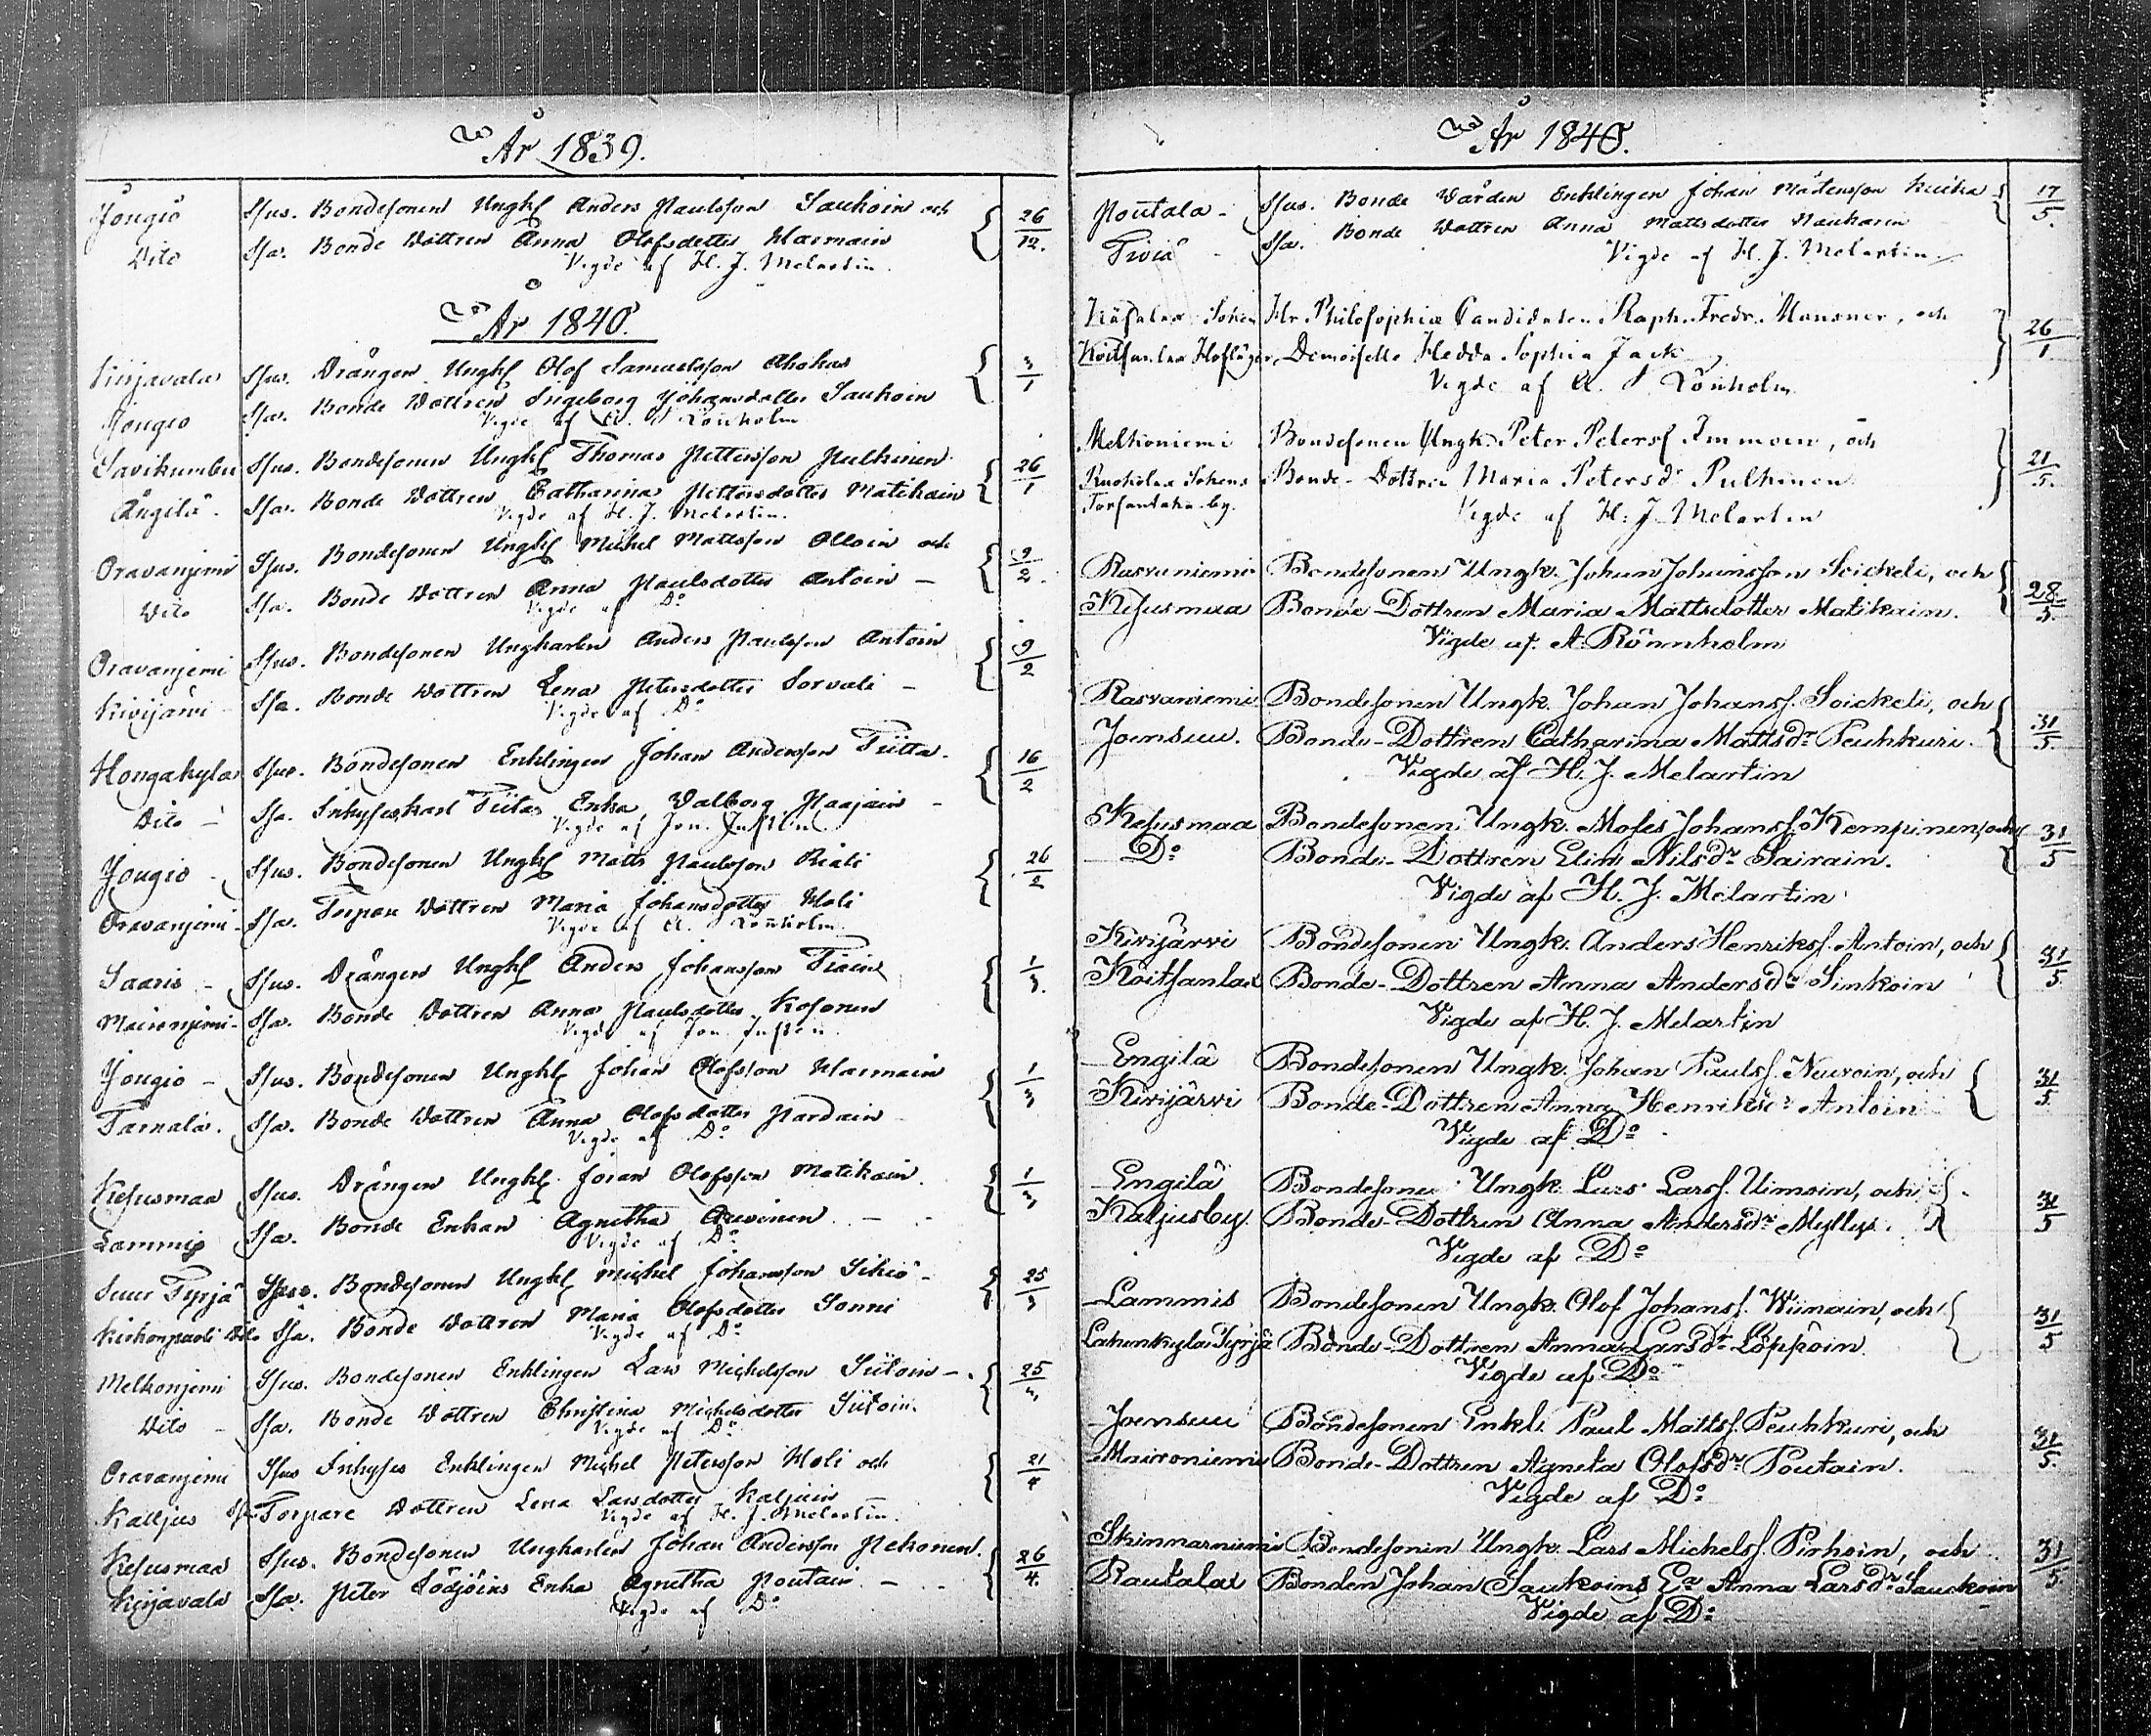 År 1839.
Jougio Spus. Bondesonen Ungkl Anders Paulsson Saukoin och 26/12.
Dito Spa. Bonde Dottren Anna Olofsdotter Harmain
Vigde af H. J. Melartin.
År 1840.
Kirjavala Spus. Drängen Ungkl Olof Samuelsson Ahokas 3/1
Jougio Spa. Bonde Dottren Ingeborg Johansdotter Saukoin
Vigde af A. Rönholm
Savikumbu Spus. Bondesonen Ungkl Thomas Pettersson Pulkinen 26/1
Ängilä. Spa. Bonde Dottren Catharina Pettersdotter Matikain
Vigde af H. J. Melartin.
Oravanjemi Spus. Bondesonen Ungkl Michel Mattsson Olloin och 9/2.
Dito Spa. Bonde Dottren Anna Paulsdotter Antoin –
Vigde af Do
Oravanjemi Spus. Bondesonen Ungkarlen Anders Paulsson Antoin 9/2
Kivijärvi Spa. Bonde Dottren Lena Petersdotter Sorvali –
Vigde af Do
Hongakylä Spus. Bondesonen Enklingen Johan Andersson Tiitta. 16/2
Dito – Spa. Inhyseskarl Tiitas Enka, Valborg Paajain –
Vigde af Jon.
Jougio – Spus. Bondesonen Ungkl Matts Paulsson Riali 26/2
Oravanjemi – Spa. Torpare Dottren Maria Johansdotter Holi
Vigde af A. Rönholm
Saaris – Spus. Drängen Ungkl Anders Johansson Tiain 1/3.
Maironjemi – Spa. Bonde Dottren Anna Paulsdotter Kosonen
Vigde af Jon.
Jougio – Spus. Bondesonen Ungkl Johan Olofsson Harmain 1/3
Tarnala. Spa. Bonde Dottren Anna Olofsdotter Pardain –
Vigde af Do
Kesusmaa Spus. Drängen Ungkl Jöran Olofsson Matikain. 1/3
Lammis Spa. Bonde Enkan Agnetha – –
Vigde af Do
Suur Tyrjä Spus. Bondesonen Ungkl Michel Johansson Sikiö – 25/3
Kirkonpuoli Dito Spa. Bonde Dottren Maria Olofsdotter Sonni
Vigde af Do
Melkonjemi Spus. Bondesonen Enklingen Lars Michelsson Siitoin – 25/3
Dito – Spa. Bonde Dottren Christina Michelsdotter Siitoin.
Vigde af Do
Oravanjemi Spus Inhyses Enklingen Michel Petersson Holi och 21/4
Kalljus Spa Torpare Dottren Lena Larsdotter Kaljuin
Vigde af H. J. Melartin.
Kesusmaa Spus. Bondesonen Ungkarlen Johan Andersson Pekonen. 26/4.
Kirjavala Spa. Peter Södjöins Enka Agnetha Poutain – –
Vigde af Do
År 1840.
Poutala – Spus. Bonde Vården Enklingen Johan Mårtensson Kuika 17/5.
Tiviä – Spa. Bonde Dottren Anna Mattsdotter Naukarin
Vigde af H. J. Melartin
Socken Hr Philosophiæ Candidaten Raph. Fredr. Mansner, och 26/1
Koitsanlax Hofläger, Demoiselle Hedda Sophia Jack
Vigde af A. Rönholm
Melkoniemi Bondesonen Ungk. Peter Petersf. Immoin, och 21/5.
Ruokolax Sokens Bonde-Dottren Maria Petersdr Pulkinen
Torsantaka by.
Vigde af H. J. Melartin
Rasvaniemi Bondesonen Ungk. Johan Johansson Soickeli, och 28/5.
Kesusmaa Bonde Dottren Maria Mattsdotter Matikain.
Vigde af A. Rönnholm
Rasvaniemi Bondesonen Ungk. Johan Johansf. Soickeli, och 31/5
Joensuu. Bonde-Dottren Catharina Mattsdr Peuhkuri.
Vigde af H. J. Melartin
Kesusmaa Bondesonen Ungk. Moses Johansf. Kempinen, och 31/5
Do Bonde-Dottren Elin Nilsdr Sairain.
Vigde af H. J. Melartin
Kivijärvi Bondesonen Ungk. Anders Henriksf. Antoin, och 31/5
Koitsanlax Bonde-Dottren Anna Andersdr Sinkoin
Vigde af H. J. Melartin
Engilä Bondesonen Ungk. Johan Paulsf. Neuvoin, och 31/5.
Kivijärvi Bonde-Dottren Anna Henriksdr Antoin
Vigde af Do
Engilä Bondesonen Ungk. Lars Larsf. Uimoin, och 31/5
Kaljusby. Bonde-Dottren Anna Andersdr Myllys.
Vigde af Do
Lammis Bondesonen Ungk. Olof Johansf. Wiinain, och 31/5
Lahenkylä Tyrjä Bonde-Dottren Anna Larsdr Löppöin.
Vigde af Do
Joensuu Bondesonen Enkl. Paul Mattsf. Peuhkuri, och 31/5.
Maironiemi Bonde-Dottren Agneta Olofsdr Poutain.
Vigde af Do
Skinnarniemi Bondesonen Ungk. Lars Michelsf. Pirhoin, och 31/5.
Rautalax Bonden Johan Saukoins Ea Anna Larsdr Sauckoin
Vigde af Do